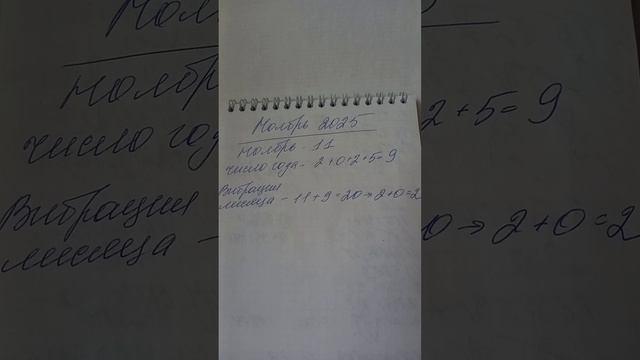 Ноябрь 2025
Ноябрь - 11
число года - 2+0+2+5=9
Вибрация
месяца - 11+9=20→2+0=2